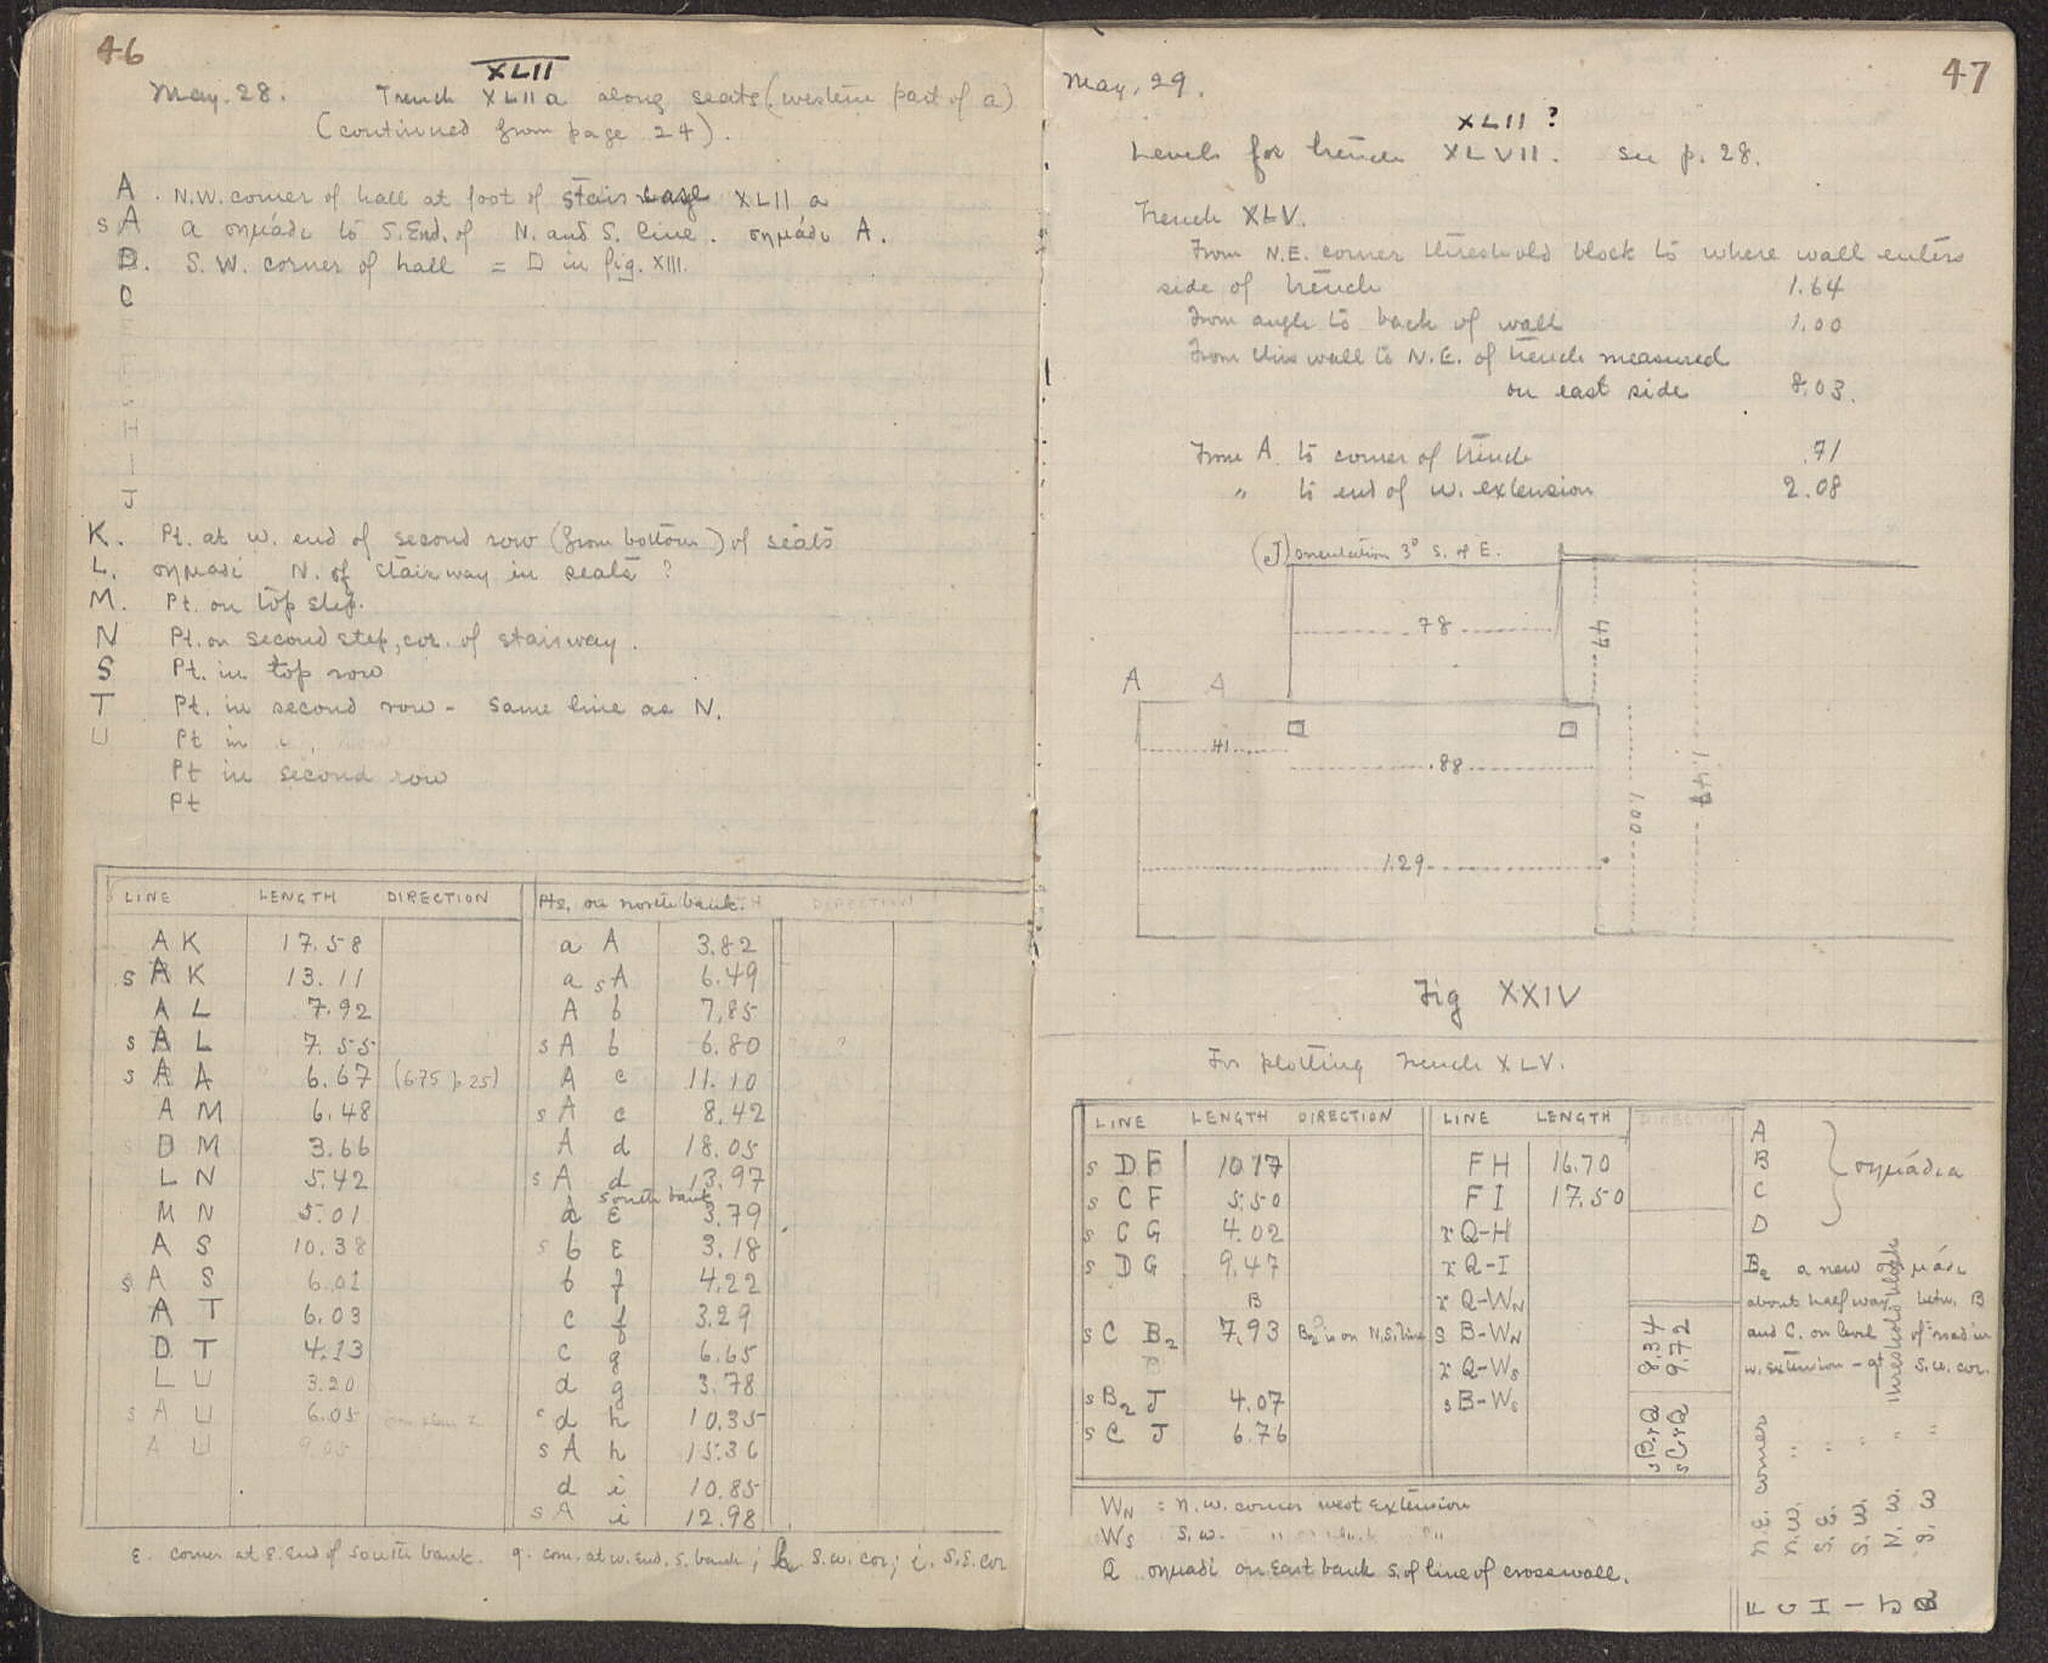 46
May. 28. Trench XLII a along seats (western part of a)
XLII
(continued from page 24).
A. N.W. corner of hall at foot of staircase XLII a
sA a σημάδι to S. End. of N. and S. line. σημάδι A.
D. S.W. corner of hall = D in fig. XIII.
C
H
I
J
K. Pt. at w. end of second row (from bottom) of seats
L. σημαδι N. of stairway in seats ?
M. Pt. on top step.
N Pt. on second step, cor. of stairway.
S Pt. in top row
T Pt. in second row - same line as N.
U Pt in
Pt in second row
Pt
LINE LENGTH DIRECTION Pts. on north bank. DIRECTION
A K 17.58 a A 3.82
s A K 13.11 a sA 6.49
A L 7.92 A b 7.85
s A L 7.55 s A b 6.80
s A A 6.67 (6.75 p. 25) A c 11.10
A M 6.48 s A c 8.42
D M 3.66 A d 18.05
L N 5.42 s A d 13.97
south bank
M N 5.01 a ε 3.79
A S 10.38 s b ε 3.18
s A S 6.01 b f 4.22
A T 6.03 c f 3.29
D T 4.13 c g 6.65
L U 3.20 d g 3.78
s A U 6.05 d h 10.35
A U 9.05 s A h 15.36
d i 10.85
s A i 12.98
ε. corner at E. End of south bank. g. cor. at w. End. S. bank; h S.W. cor; i. S.E. cor
47
May, 29.
XLII ?
Levels for trench XLVII. see p. 28.
Trench XLV.
From N.E. corner threshold block to where wall enters
side of trench 1.64
From angle to back of wall 1.00
From this wall to N.E. of trench measured
on east side 8.03.
From A to corner of trench .71
" to end of w. extension 2.08
(J) orientation 3° S. of E.
.78
.47
A A
.41
.88
1.47
1.00
1.29
Fig XXIV
For plotting Trench XLV.
LINE LENGTH DIRECTION LINE LENGTH DIRECTION
s D F 10.17 F H 16.70
s C F 5.50 F I 17.50
s C G 4.02 r Q-H
s D G 9.47 r Q-I
B r Q-WN
s C B2 7.93 B2 is on N.S. line s B-WN
r Q-WS
s B2 J 4.07 s B-WS
s C J 6.76
sB.rQ 8.34
sC.rQ 9.72
A
B
C
D
σημάδια
B2 a new σημάδι
about half way betw. B
and C. on level of road in
w. extension - at S.W. cor.
F N.E. corner
G N.W. "
H S.E. "
I S.W. "
J N.W. " threshold block
S.W "
WN = N.W. corner west extension
WS S.W. " "
Q σημαδι on East bank S. of line of crosswall.